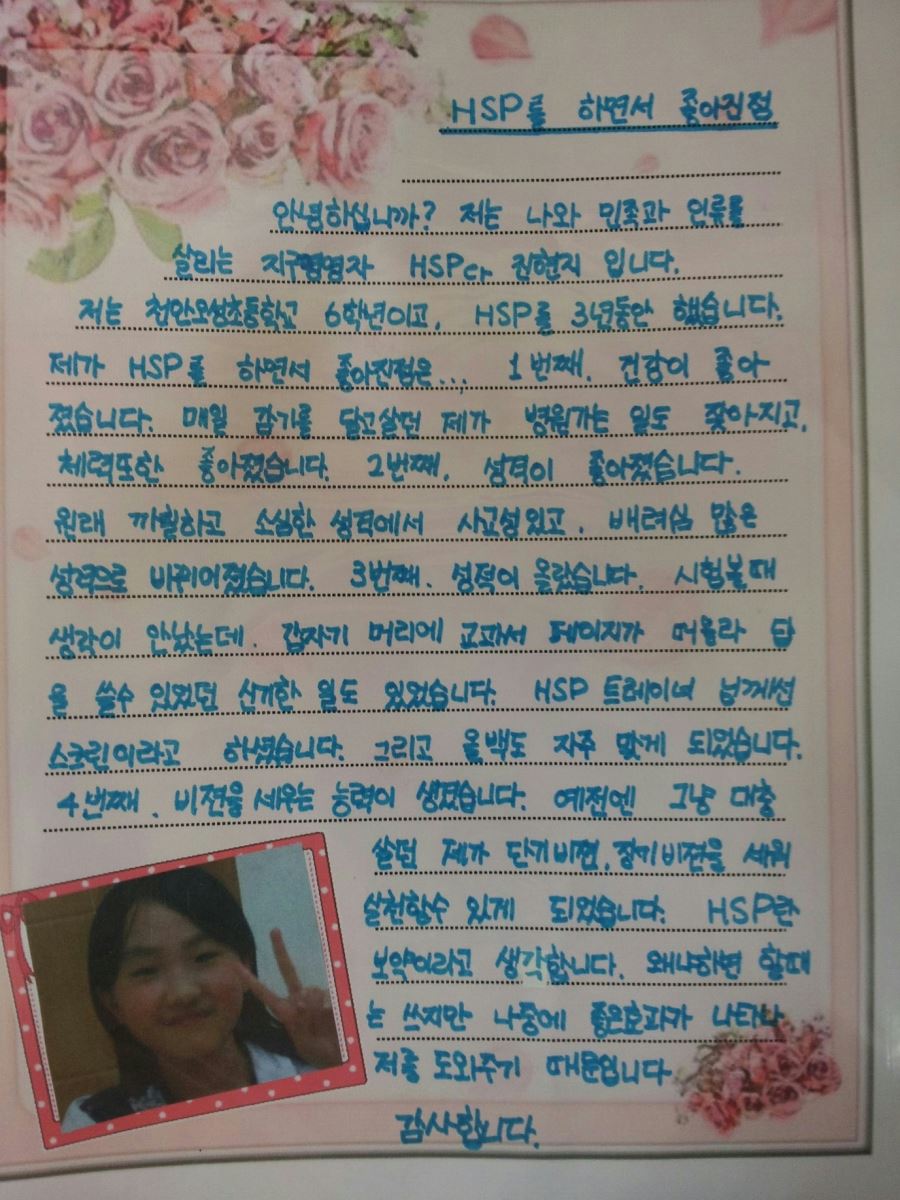 HSP를 하면서 좋아진점
안녕하십니까? 저는 나와 민족과 인류를
살리는 지구경영자 HSP다 진현지 입니다.
저는 천안오성초등학교 6학년이고, HSP를 3년동안 했습니다.
제가 HSP를 하면서 좋아진점은... 1번째, 건강이 좋아
졌습니다. 매일 감기를 달고살던 제가 병원가는 일도 잦아지고,
체력또한 좋아졌습니다. 2번째, 성격이 좋아졌습니다.
원래 까칠하고 소심한 성격에서 사교성있고, 배려심 많은
성격으로 바뀌어졌습니다. 3번째, 성적이 올랐습니다. 시험볼때
생각이 안났는데, 갑자기 머리에 교과서 페이지가 떠올라 답
을 쓸수 있었던 신기한 일도 있었습니다. HSP 트레이너 님께선
스크린이라고 하셨습니다. 그리고 올백도 자주 맞게 되었습니다.
4번째, 비젼을 세우는 능력이 생겼습니다. 예전엔 그냥 대충
살던 제가 단기비젼, 장기비젼을 세워
실천할수 있게 되었습니다. HSP란
보약이라고 생각합니다. 왜냐하면 할때
는 쓰지만 나중에 좋은효과가 나타나
저를 도와주기 때문입니다
감사합니다.